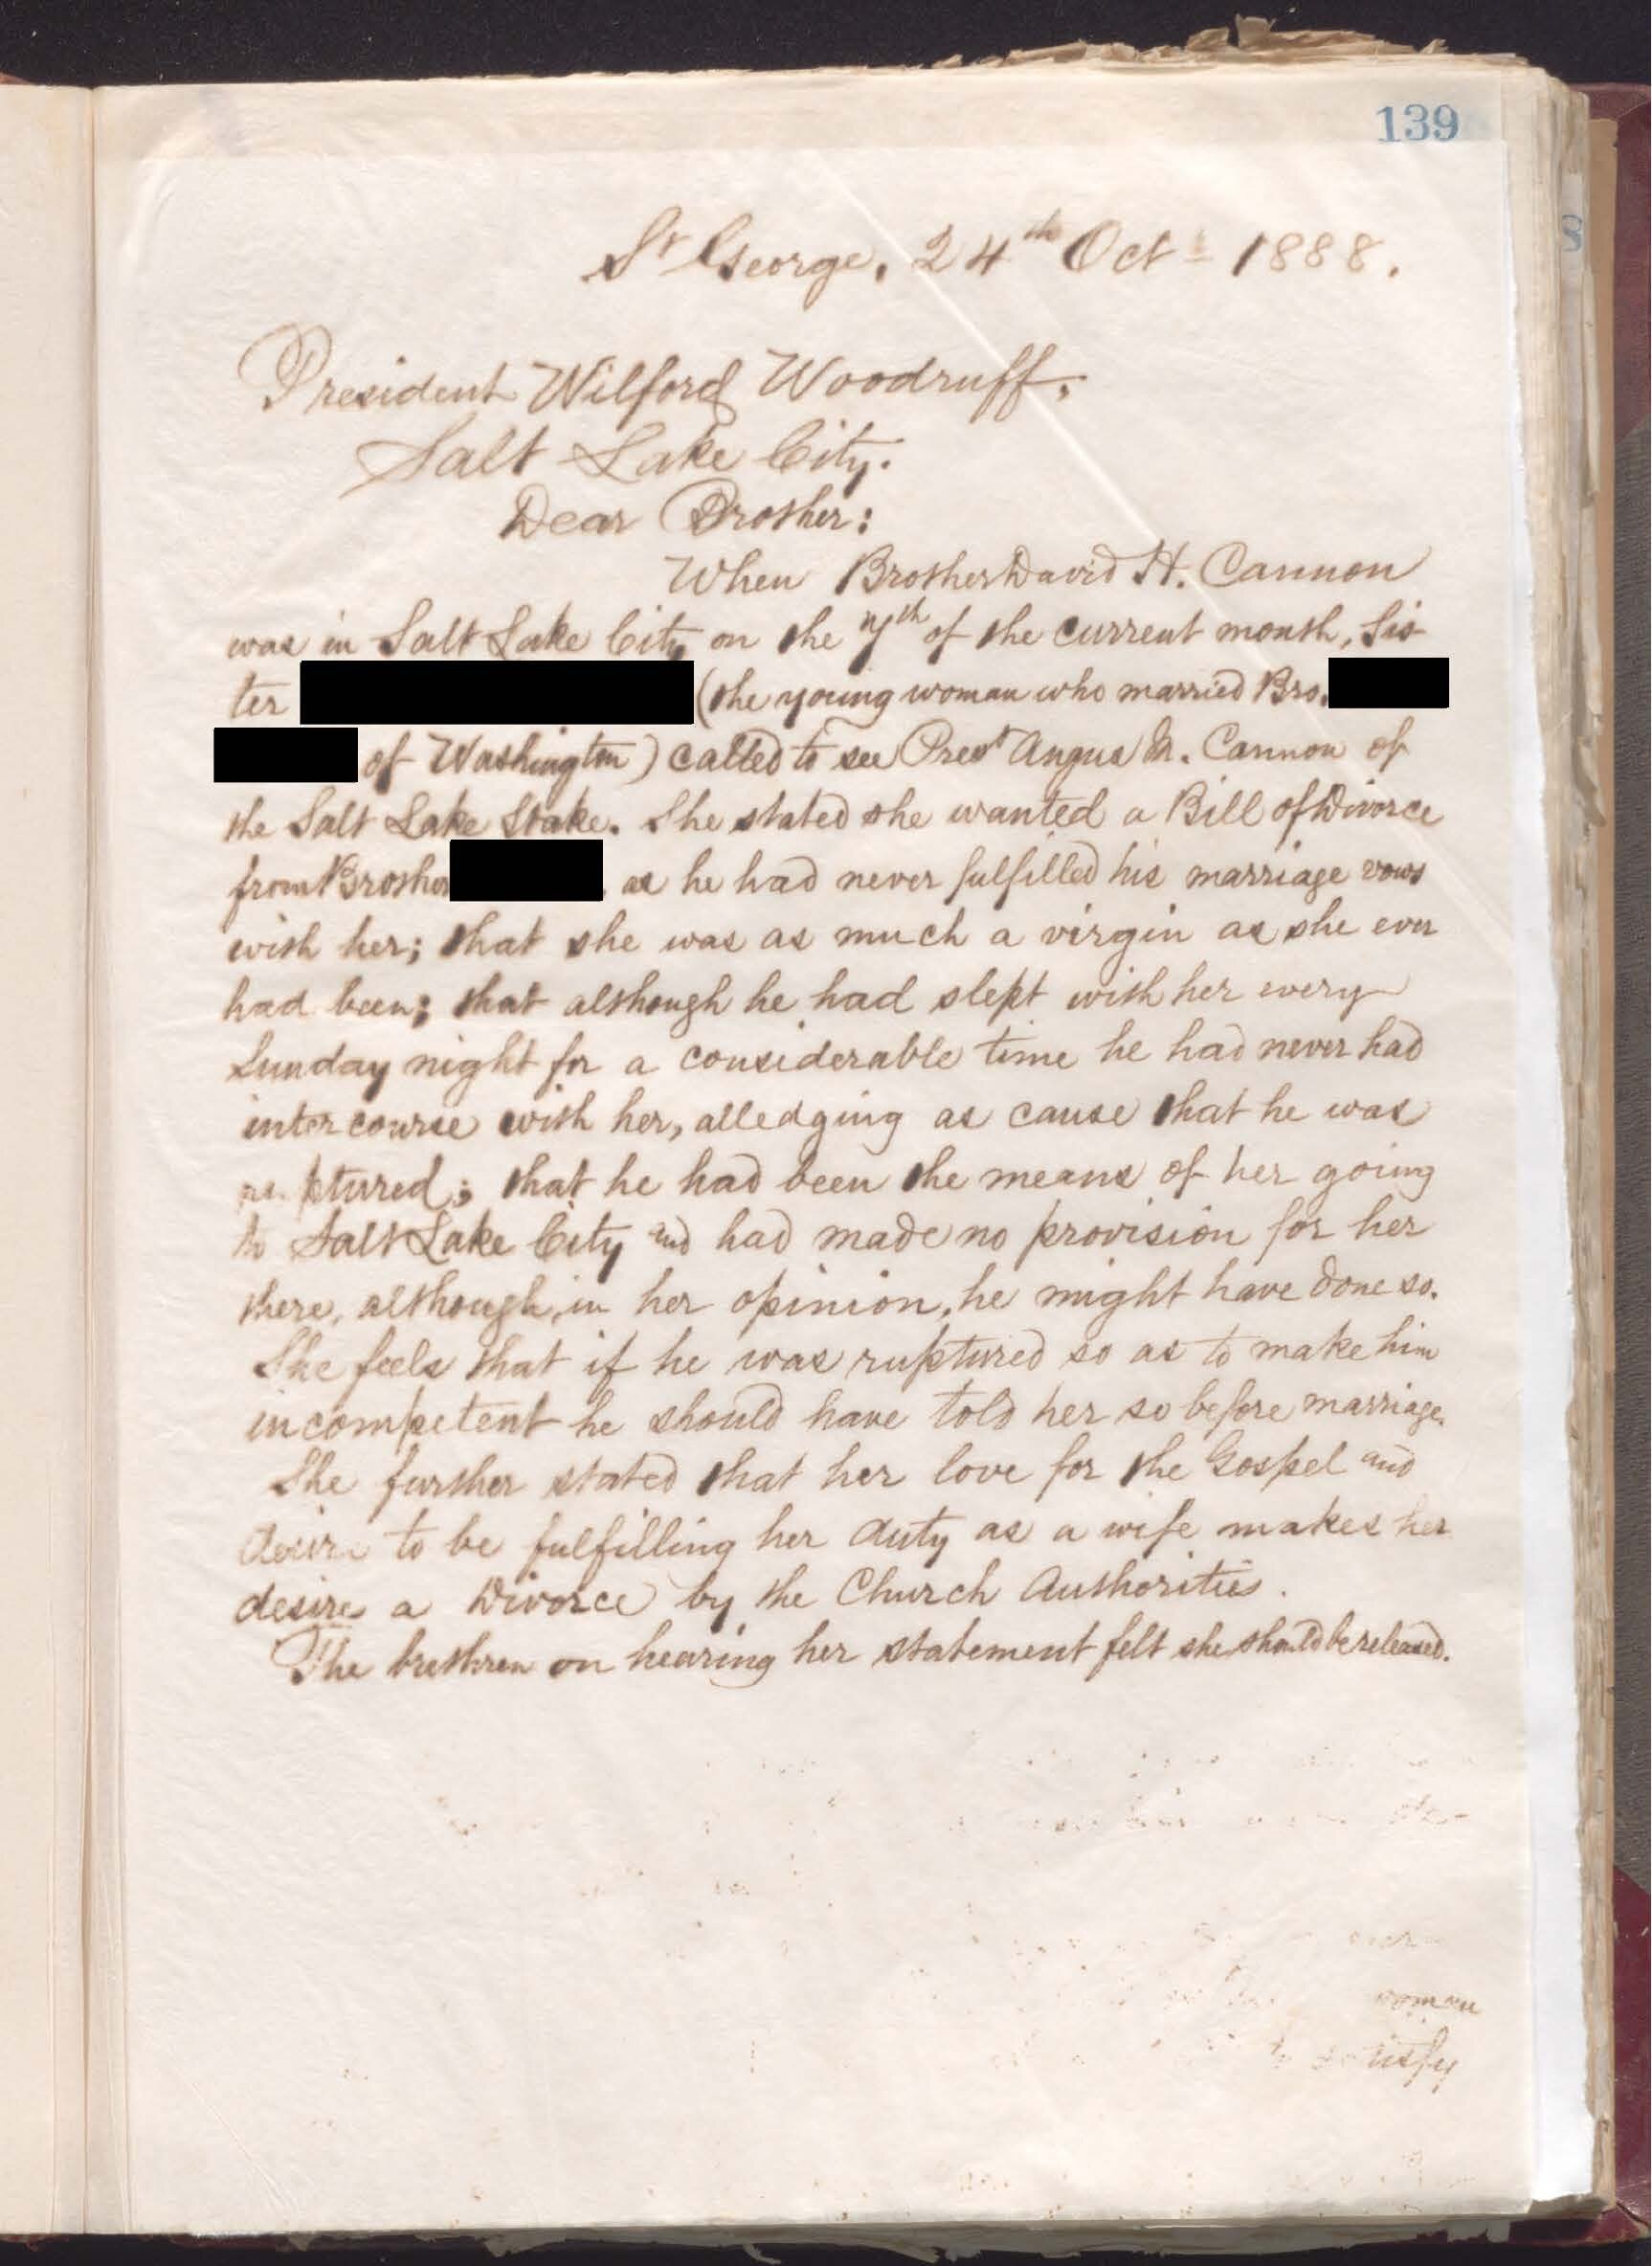 139
St George, 24th Oct 1888.
President Wilford Woodruff,
Salt Lake City.
Dear Brother:
When Brother David H. Cannon
was in Salt Lake City on the 7th of the current month, Sis-
ter (the young woman who married Bro.
of Washington) called to see Prest Angus M. Cannon of
the Salt Lake Stake. She stated she wanted a Bill of Divorce
from Brother as he had never fulfilled his marriage vows
with her; that she was as much a virgin as she ever
had been; that although he had slept with her every
Sunday night for a considerable time he had never had
intercourse with her, alledging as cause that he was
ruptured; that he had been the means of her going
to Salt Lake City and had made no provision for her
there, although, in her opinion, he might have done so.
She feels that if he was ruptured so as to make him
incompetent he should have told her so before marriage.
She further stated that her love for the Gospel and
desire to be fulfilling her duty as a wife makes her
desire a Divorce by the Church Authorities.
The brethren on hearing her statement felt she should be released.
woman
satisfy